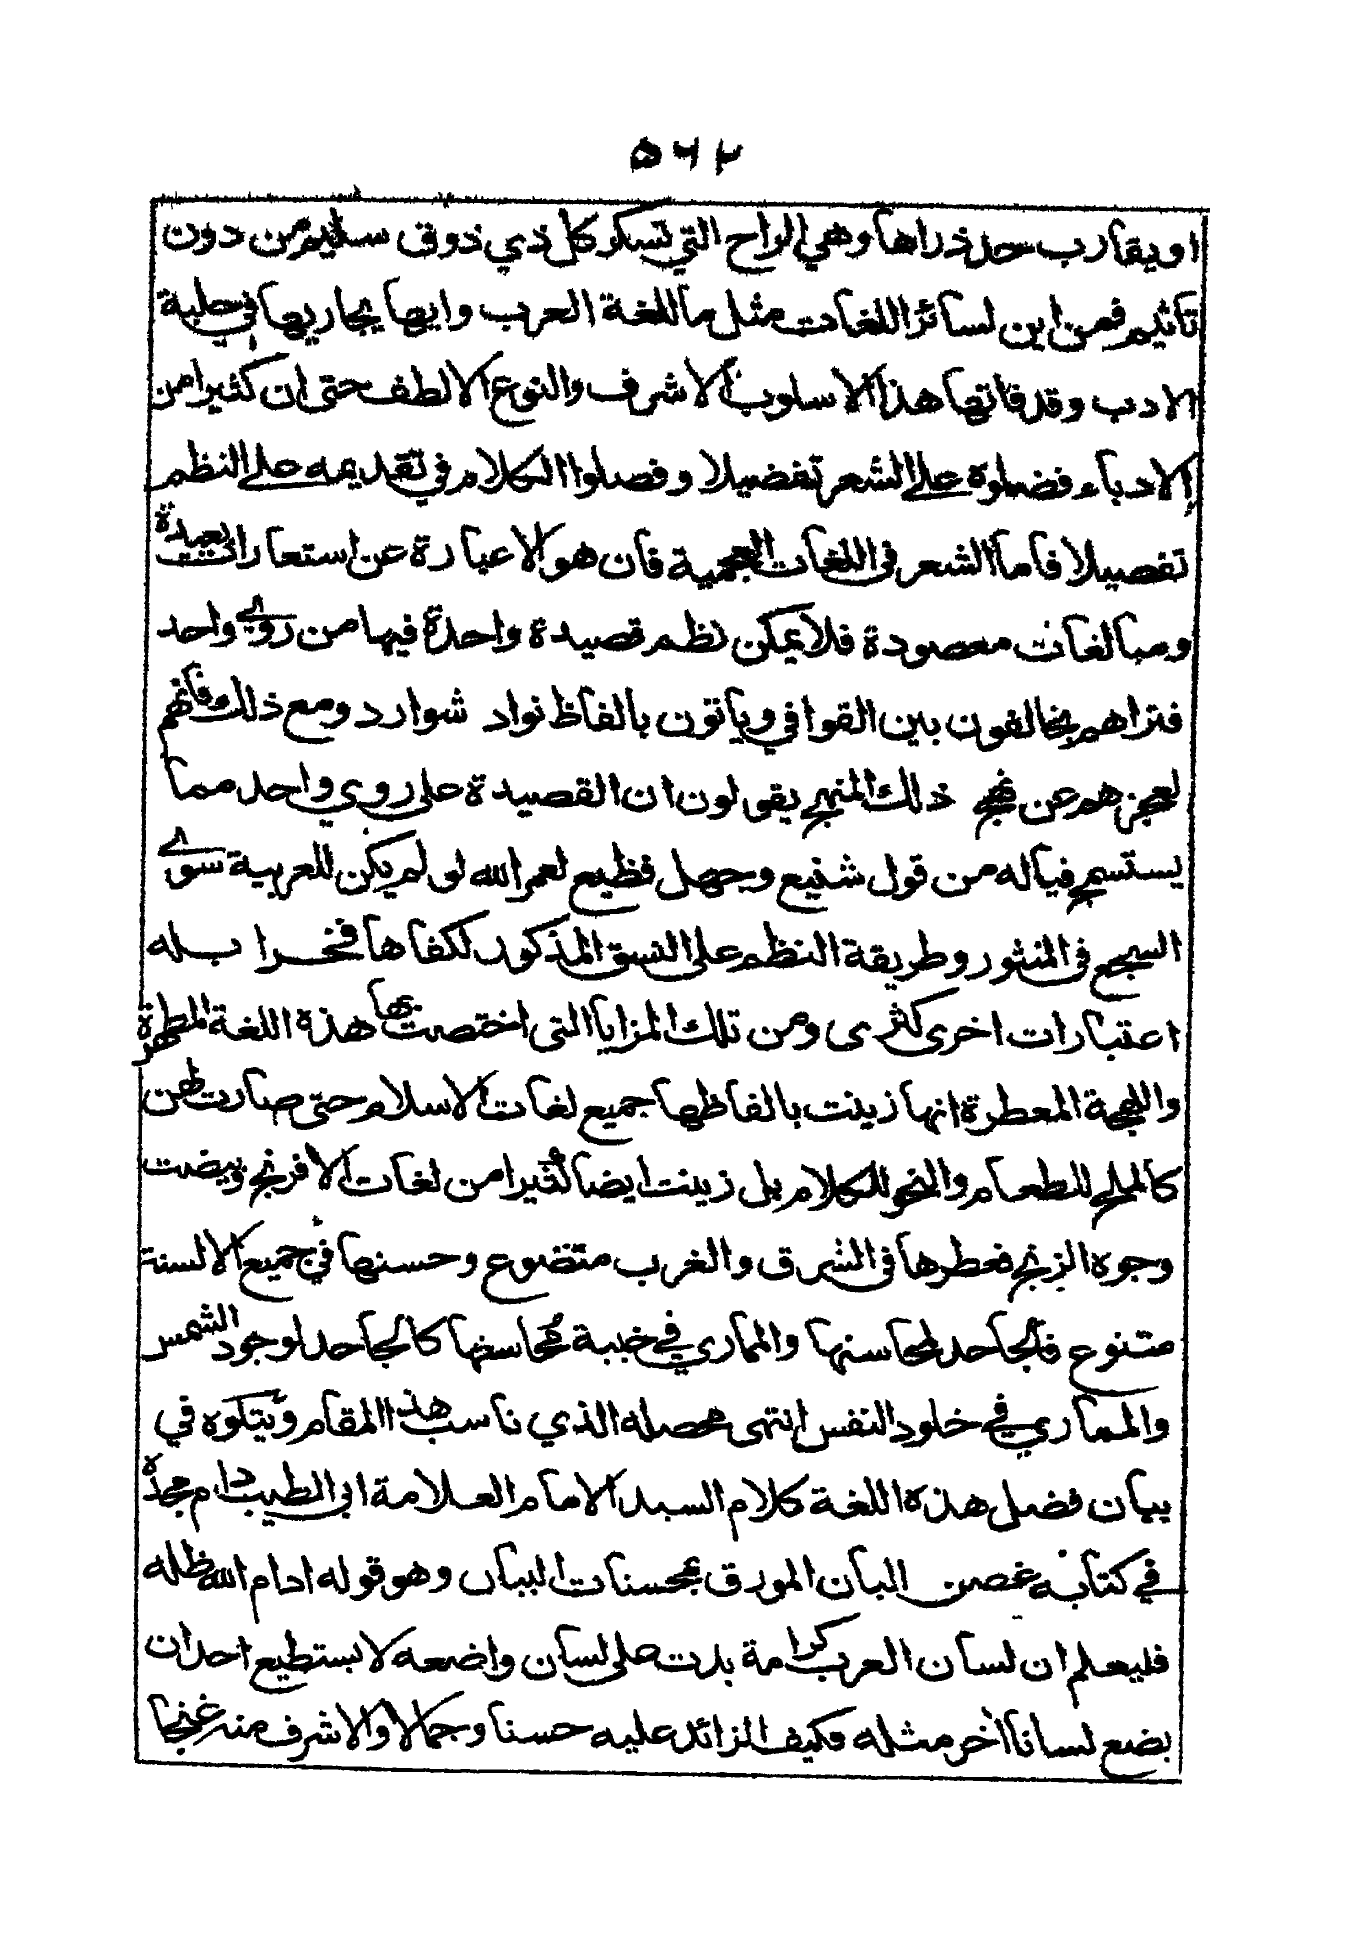 ٥٦٢
او يقارب حد ذراها وهي الراح التي تسكر كل ذي ذوق سليم من دون
تاثيم فمن اين لسائر اللغات مثل ما للغة العرب وايها يجاريها في حلبة
الادب وقد فاتها هذا الاسلوب الاشرف والنوع الالطف حتى ان كثيرا من
الادباء فضلوة على الشعر تفضيلا وفصلوا الكلام في تقديمه على النظم
تفصيلا فاما الشعر في اللغات العجمية فان هو الا عبارة عن استعارات بعيدة
ومبالغات معصودة فلا يمكن نظم قصيدة واحدة فيها من روي واحد
فتراهم يخالفون بين القوافي وياتون بالفاظ نواد شوارد ومع ذلك وفانهم
لعجزهم عن نهج ذلك المنهج يقولون ان القصيدة على روي واحد مما
يستسمج فياله من قول شنيع وجهل فظيع لعمر الله لو لم يكن للعربية سوى
السجع في المنثور وطريقة النظم على النسق المذكور لكفاها فخرا بله
اعتبارات اخرى كثرى ومن تلك المزايا التي اختصت بها هذه اللغة المطهرة
واللهجة المعطرة انها زينت بالفاظها جميع لغات الاسلام حتى صارت لهن
كالملح للطعام والنحو للكلام بل زينت ايضا كثيرا من لغات الافرنج وبيضت
وجوه الزنج فعطرها في الشرق والغرب متضوع وحسنها في جميع الالسنة
متنوع فالجاحد لمحاسنها والمماري في خيبة محاسنها كالجاحد لوجود الشمس
والمماري في خلود النفس انتهى محصله الذي ناسب هذا المقام ويتلوه في
بيان فضل هذه اللغة كلام السيد الامام العلامة ابي الطيب دام مجده
في كتابه غصن البان المورق بمحسنات البيان وهو قوله ادام الله ظله
فليعلم ان لسان العرب كرامة بدت على لسان واضعه لا يستطيع احد ان
يضع لسانا اخر مثله فكيف الزائد عليه حسنا وجمالا والاشرف منه غنجا